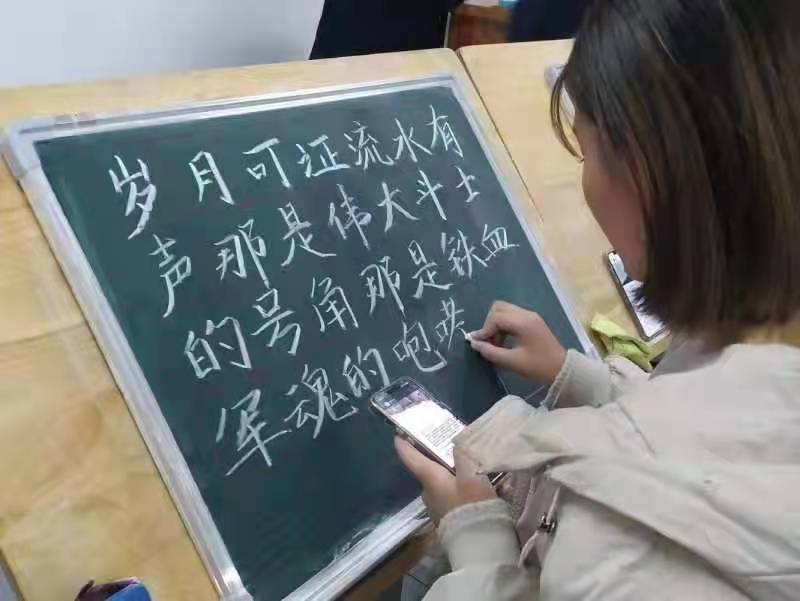 岁月可证流水有
声那是伟大斗士
的号角那是铁血
军魂的咆